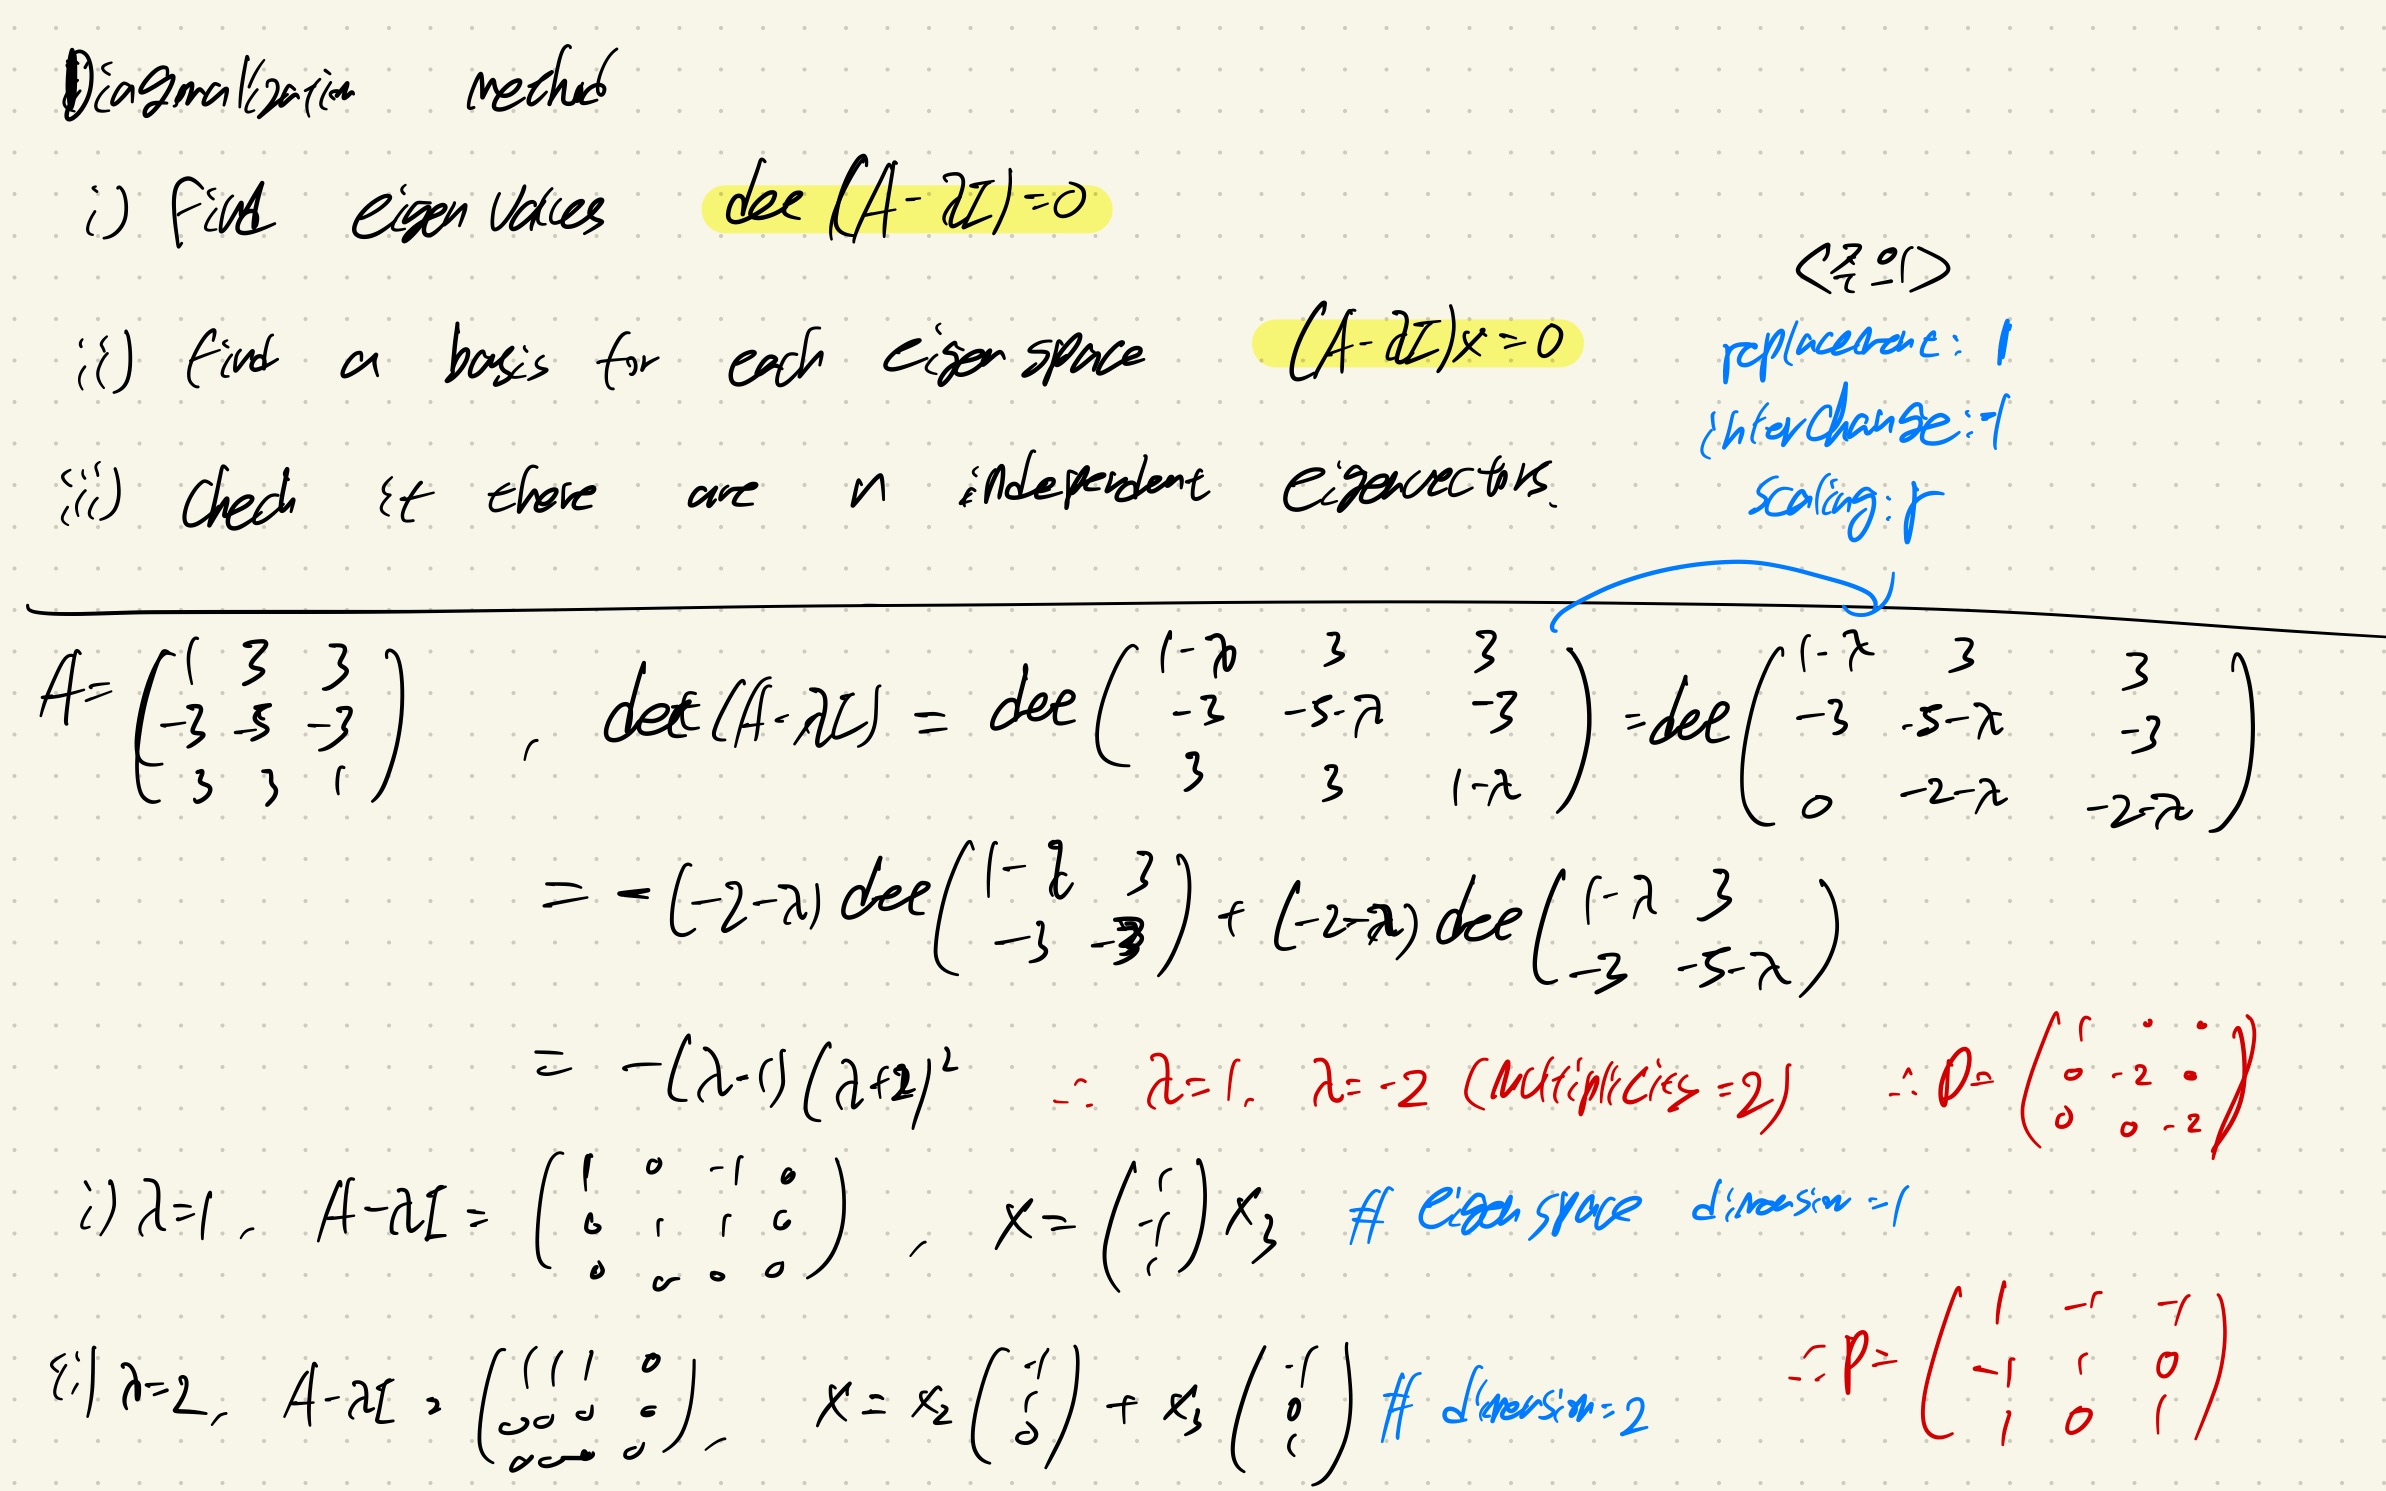 Diagonalization method
i) Find eigenvalues det(A-λI)=0
ii) find a basis for each eigenspace (A-λI)x=0
iii) Check if there are n independent eigenvectors.
replacement: 1
interchange: -1
scaling: r
A= (1 3 3
-3 -5 -3
3 3 1) , det(A-λI) = det (1-λ 3 3
-3 -5-λ -3
3 3 1-λ) = det (1-λ 3 3
-3 -5-λ -3
0 -2-λ -2-λ)
= -(-2-λ) det (1-λ 3
-3 -3) + (-2-λ) det (1-λ 3
-3 -5-λ)
= -(λ-1)(λ+2)² ∴ λ=1, λ=-2 (Multiplicities=2) ∴ D= (1 0 0
0 -2 0
0 0 -2)
i) λ=1, A-λI = (1 0 -1 0
0 1 1 0
0 0 0 0) , x= (1
-1
1) x₃ # eigenspace dimension=1
ii) λ=2, A-λI = (1 1 1 0
0 0 0 0
0 0 0 0), x= x₂ (-1
1
0) + x₃ (-1
0
1) # dimension=2
∴ P= (1 -1 -1
-1 1 0
1 0 1)